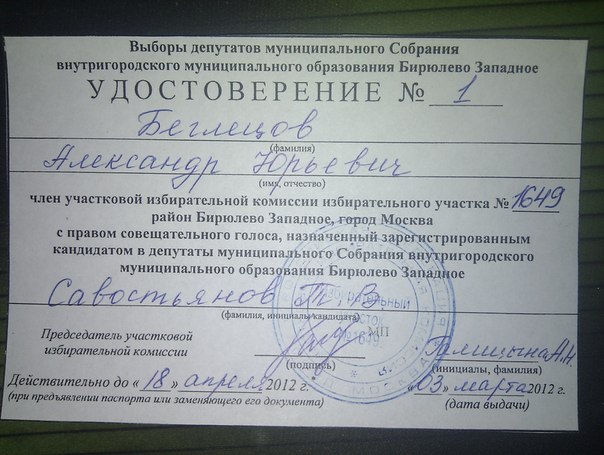 Выборы депутатов муниципального Собрания
внутригородского муниципального образования Бирюлево Западное
УДОСТОВЕРЕНИЕ № 1
Беглецов
(фамилия)
Александр Юрьевич
(имя, отчество)
член участковой избирательной комиссии избирательного участка № 1649
район Бирюлево Западное, город Москва
с правом совещательного голоса, назначенный зарегистрированным
кандидатом в депутаты муниципального Собрания внутригородского
муниципального образования Бирюлево Западное
Савостьянов
(фамилия, инициалы кандидата)
Председатель участковой МП
избирательной комиссии Галицына А.Н.
(подпись) (инициалы, фамилия)
Действительно до «18» апреля 2012 г. «03» марта 2012 г.
(при предъявлении паспорта или заменяющего его документа) (дата выдачи)
№1649